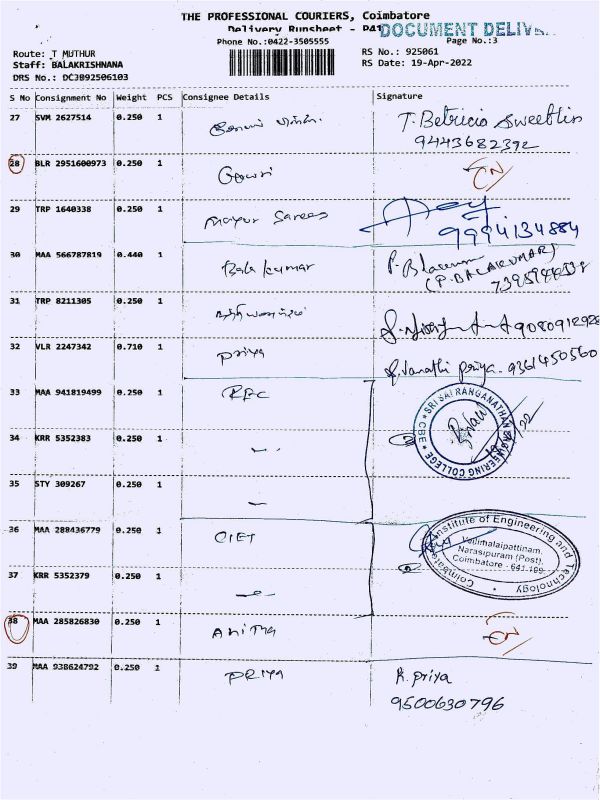 THE PROFESSIONAL COURIERS, Coimbatore
Delivery Runsheet - P41
DOCUMENT DELIV
Phone No.:0422-3505555
Page No.:3
Route: T MUTHUR
RS No.: 925061
Staff: BALAKRISHNANA
RS Date: 19-Apr-2022
DRS No.: DC3B92506103
S No Consignment No Weight PCS Consignee Details Signature
27 SVM 2627514 0.250 1
T. Betricia Sweetlin
9443682392
28 BLR 2951600973 0.250 1 Gowri
CN
29 TRP 1640338 0.250 1 Mayur Sarees
9994134884
30 MAA 566787819 0.440 1 Bala kumar
(P. BALAKUMAR)
31 TRP 8211305 0.250 1
9080912928
32 VLR 2247342 0.710 1 Priya
S. Vanathi priya. 9361450560
33 MAA 941819499 0.250 1 REC
SRI SAI RANGANATHAN ENGINEERING COLLEGE * CBE *
34 KRR 5352383 0.250 1
35 STY 309267 0.250 1
36 MAA 288436779 0.250 1 CIET
Coimbatore Institute of Engineering and Technology
Vellimalaipattinam,
Narasipuram (Post),
Coimbatore - 641 109.
37 KRR 5352379 0.250 1
38 MAA 285826830 0.250 1 Anitha
CN
39 MAA 938624792 0.250 1 PRIYA
R. Priya
9500630796